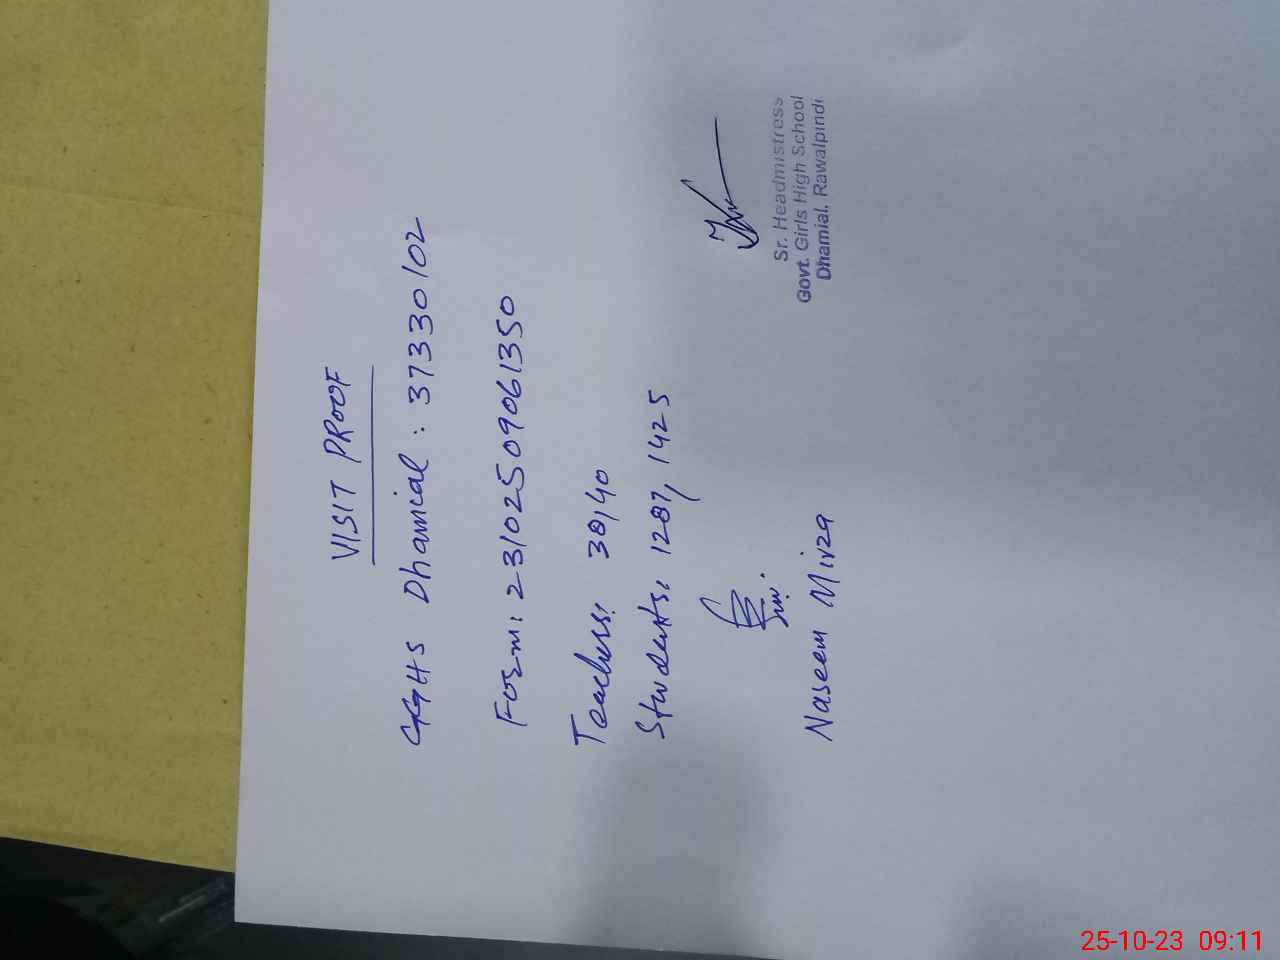 VISIT PROOF
GGHS Dhamial : 37330102
Form: 231025090613 50
Teachers: 38/40
Students: 1287/1425
Naseem Mirza
Sr. Headmistress
Govt. Girls High School
Dhamial, Rawalpindi
25-10-23 09:11